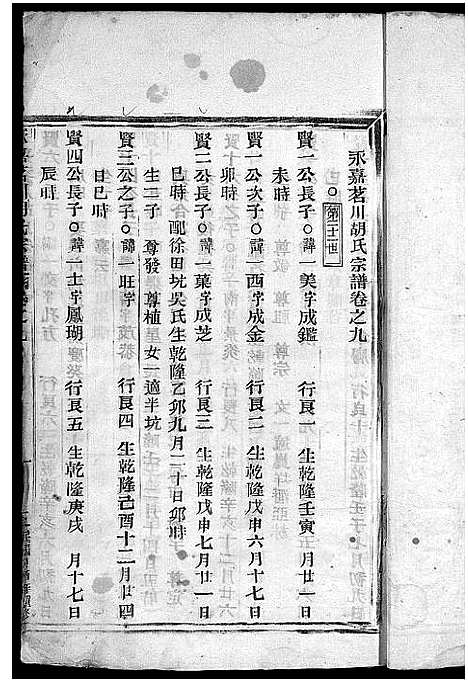 永嘉茗川胡氏宗譜卷之九
第二十二世
賢一公長子○諱一美字成鑑 行良一 生乾隆壬寅五月廿一日
未時
賢一公次子○諱一西字成金 行良二 生乾隆戊申六月十七日
卯時
賢二公長子○諱一葉字成芝 行良三 生乾隆戊申七月廿一日
巳時 配徐田坑吳氏生乾隆乙卯九月二十日卯時
生二子 尊發 尊植 女一適半坑
賢三公之子○諱一旺字 行良四 生乾隆己酉十二月廿四
日巳時
賢四公長子○諱一士字鳳瑚 行良五 生乾隆庚戌 月十七日
辰時